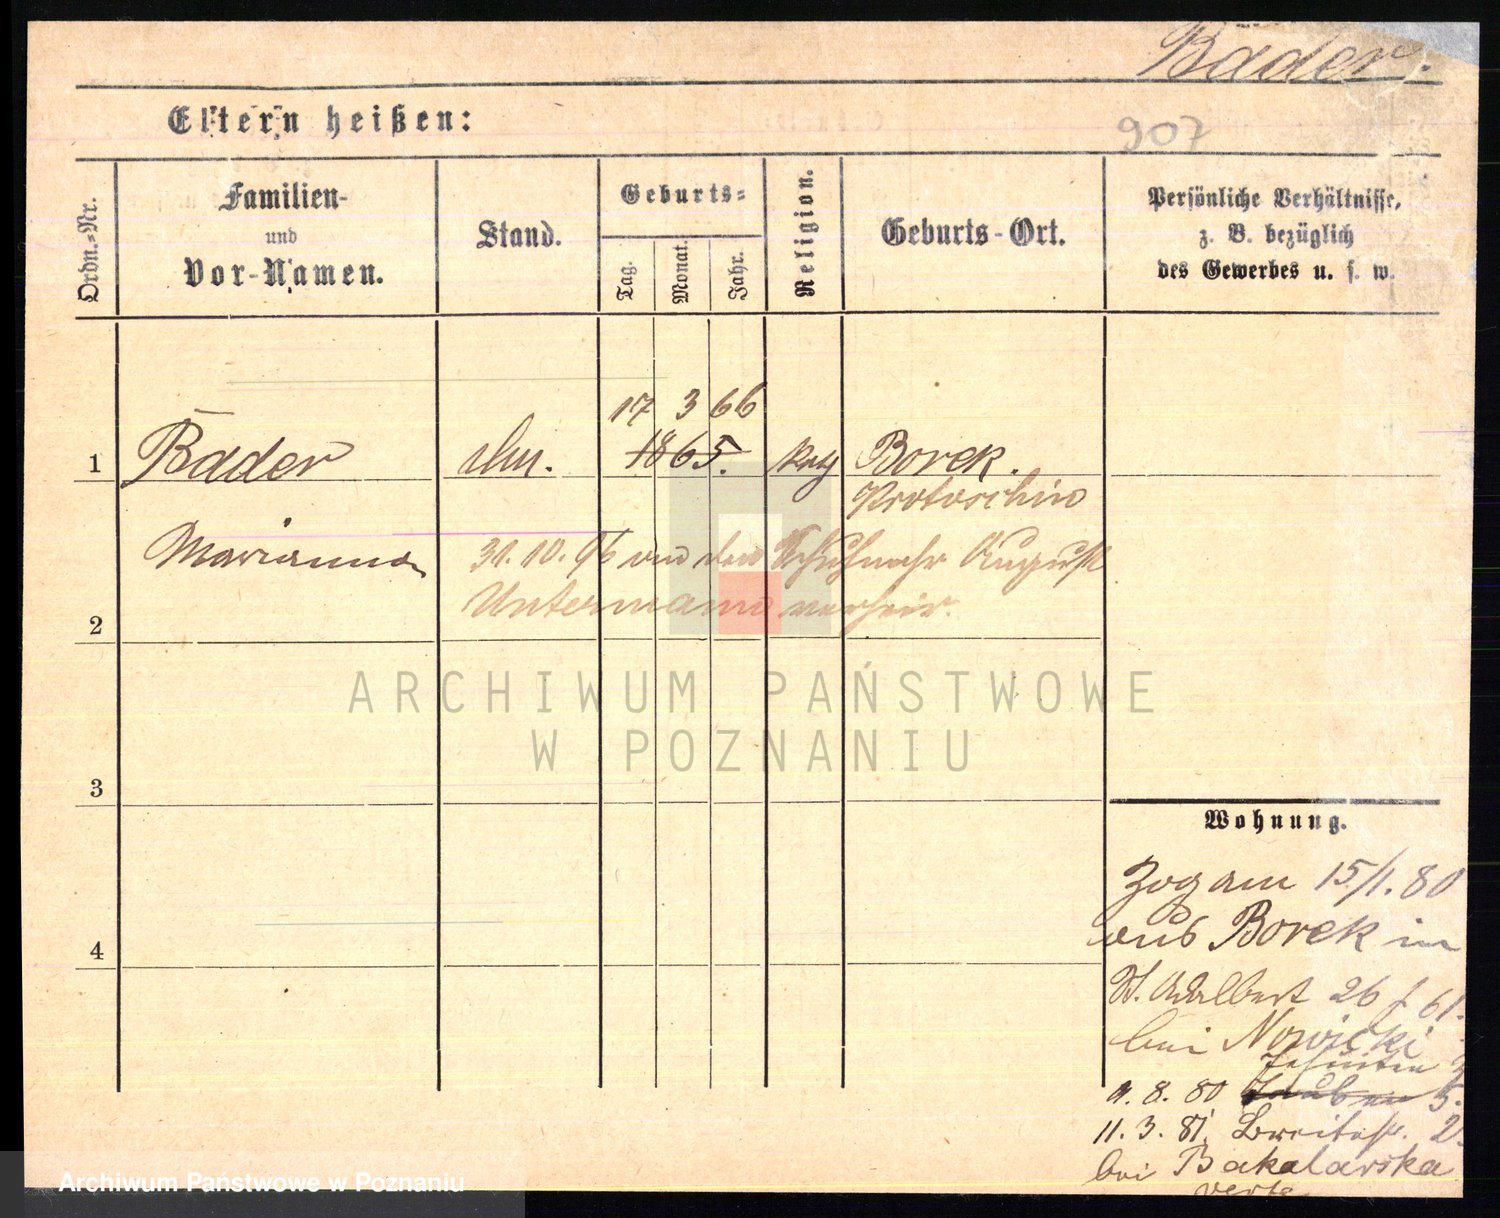 Bader.
Eltern heißen:
907
Ordn.-Nr.
Familien-
und
Vor-Namen.
Stand.
Geburts-
Tag.
Monat.
Jahr.
Religion.
Geburts-Ort.
Persönliche Verhältnisse,
z. B. bezüglich
des Gewerbes u. s. w.
17 3 66
1 Bader 1865. kath Borek.
Krotoschin
Marianna 31.10.96 an den Schuhmchr August
2 Untermann verheir.
3
4
Wohnung.
Zog am 15/1. 80
aus Borek in
St. Adalbert 26 f 61.
bei Nowicki
Jesuiten
8. 80 5.
11. 3. 81. Breitestr. 2.
bei Bakalarska
verte
ARCHIWUM PAŃSTWOWE
W POZNANIU
Archiwum Państwowe w Poznaniu